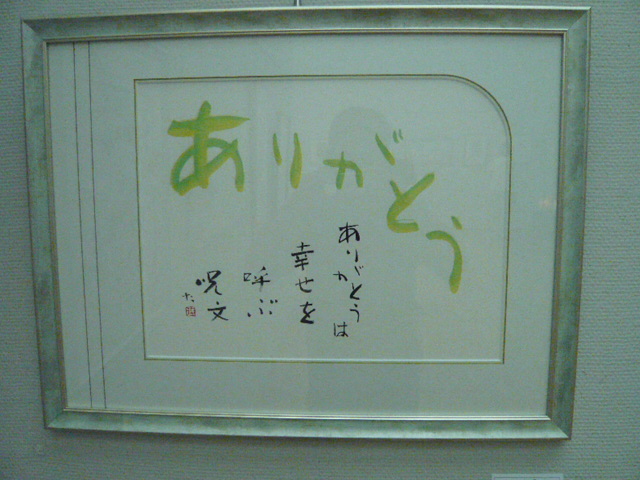 ありがとう
ありがとうは
幸せを
呼ぶ
呪文